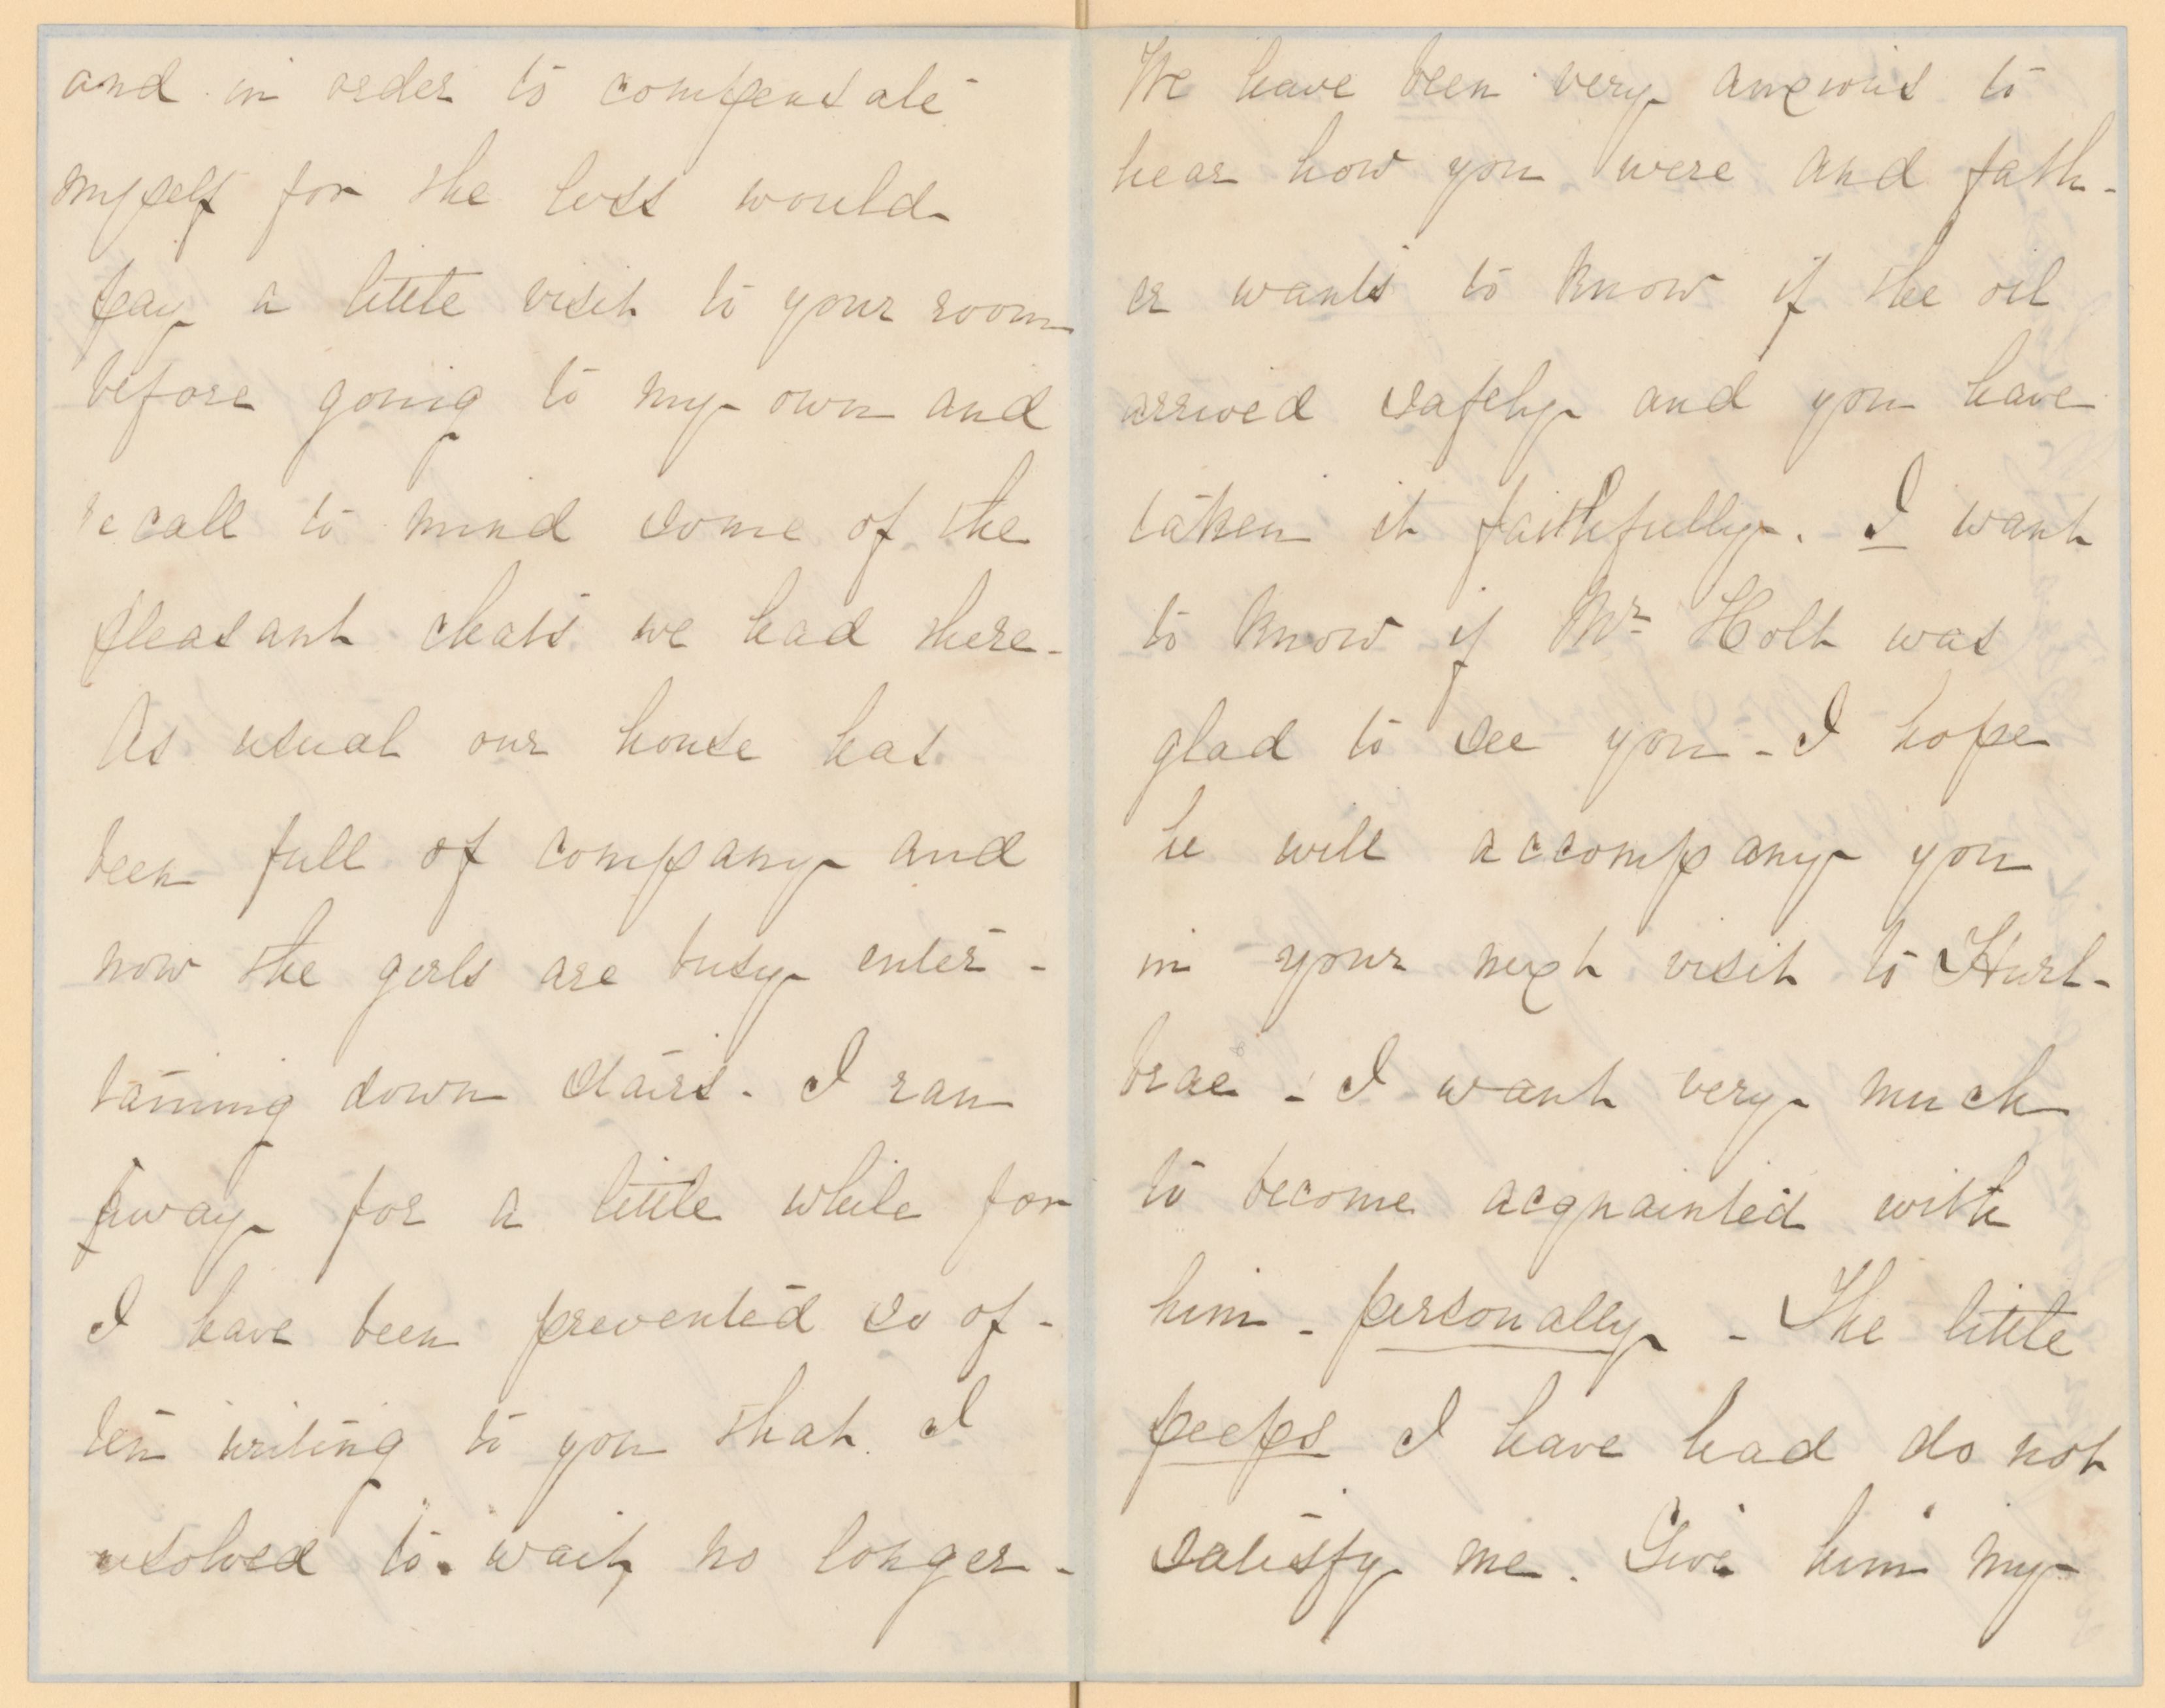 and in order to compensate
myself for the loss would
pay a little visit to your room
before going to my own and
recall to mind some of the
pleasant chats we had there-
As usual our house has
been full of company and
now the girls are busy enter-
taining down stairs. I ran
away for a little while for
I have been prevented so of-
ten writing to you that I
resolved to wait no longer-
We have been very anxious to
hear how you were and fath-
er wants to know if the oil
arrived safely and you have
taken it faithfully. I want
to know if Mr Holt was
glad to see you - I hope
he will accompany you
in your next visit to Hurl-
brae - I want very much
to become acquainted with
him - personally - The little
peeps I have had do not
satisfy me. Give him my